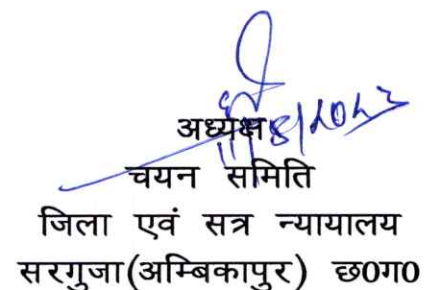 अध्यक्ष
चयन समिति
जिला एवं सत्र न्यायालय
सरगुजा(अम्बिकापुर) छ0ग0